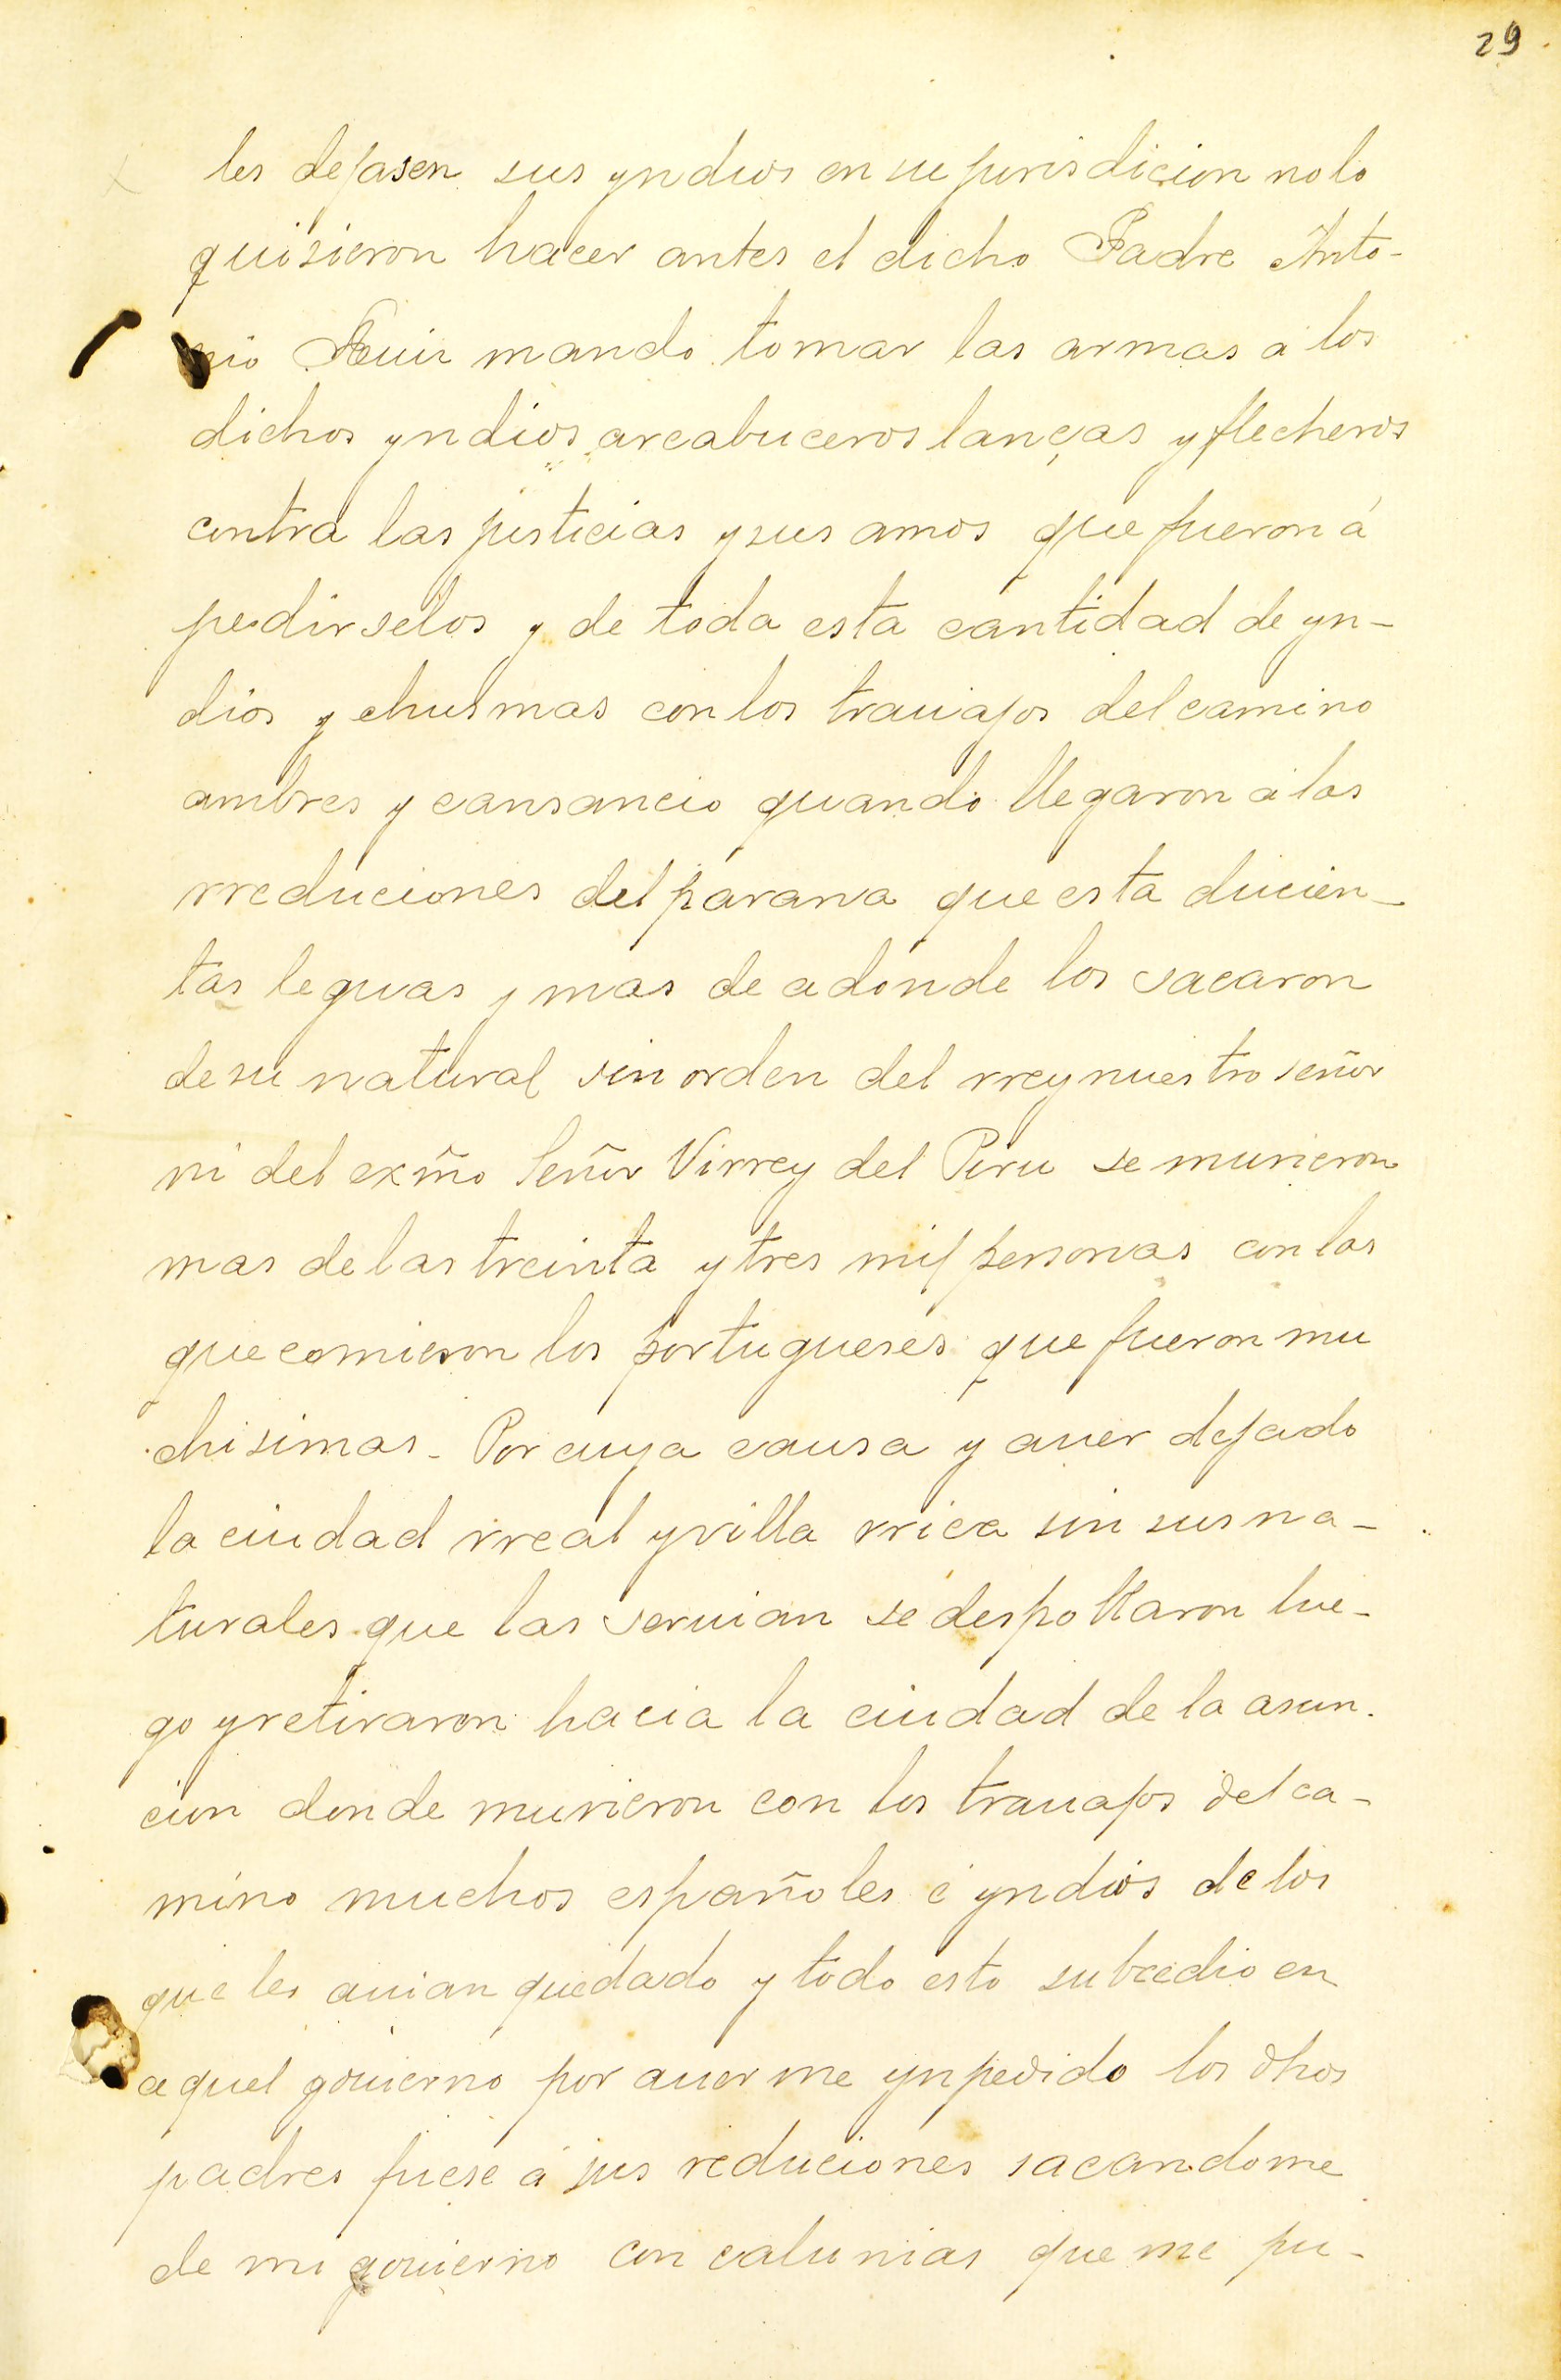 29
les dejasen sus yndios en su jurisdicion no lo
quisieron hacer antes el dicho Padre Anto-
nio Ruiz mando tomar las armas a los
dichos yndios arcabuceros lanças y flecheros
contra las justicias y sus amos que fueron á
pedirselos y de toda esta cantidad de yn-
dios y chusmas con los trauajos del camino
ambres y cansancio quando llegaron a las
rreduciones del parana que esta ducien-
tas leguas y mas de adonde los sacaron
de su natural sin orden del rrey nuestro señor
ni del exm̃o Señor Virrey del Piru se murieron
mas de las treinta y tres mil personas con las
que comieron los portugueses que fueron mu
chisimas - Por cuya causa y auer dejado
la ciudad rreal y villa rrica sin sus na-
turales que las seruian se despoblaron lue-
go y retiraron hacia la ciudad de la asun.
cion donde murieron con los trauajos del ca-
mino muchos españoles é yndios de los
que les auian quedado y todo esto subcedio en
aquel gouierno por auerme ynpedido los dhos
padres fuese á sus reduciones sacandome
de mi gouierno con calunias que me pu-